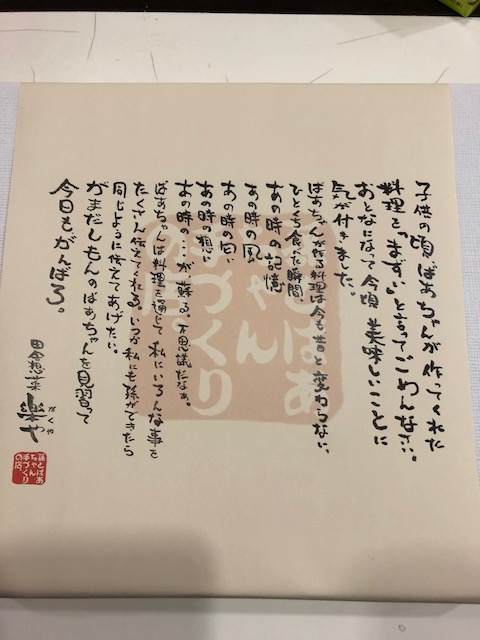 子供の頃、ばあちゃんが作ってくれた
料理を「まずい」と言ってごめんなさい。
おとなになって今頃美味しいことに
気が付きました。
ばあちゃんが作る料理は今も昔と変わらない、
ひとくち食べた瞬間、
あの時の記憶
あの時の風
あの時の匂い
あの時の想い
あの時の…が蘇る。不思議だなぁ。
ばあちゃんは料理を通じて私にいろんな事を
たくさん伝えてくれる。いつか私にも孫ができたら
同じように伝えてあげたい。
がまだしもんのばあちゃんを見習って
今日も、がんばろ。
田舎惣菜
がくや
樂や
孫とばあ
ちゃん
手づくり
の店
孫とばあ
ちゃん
手づくり
の店